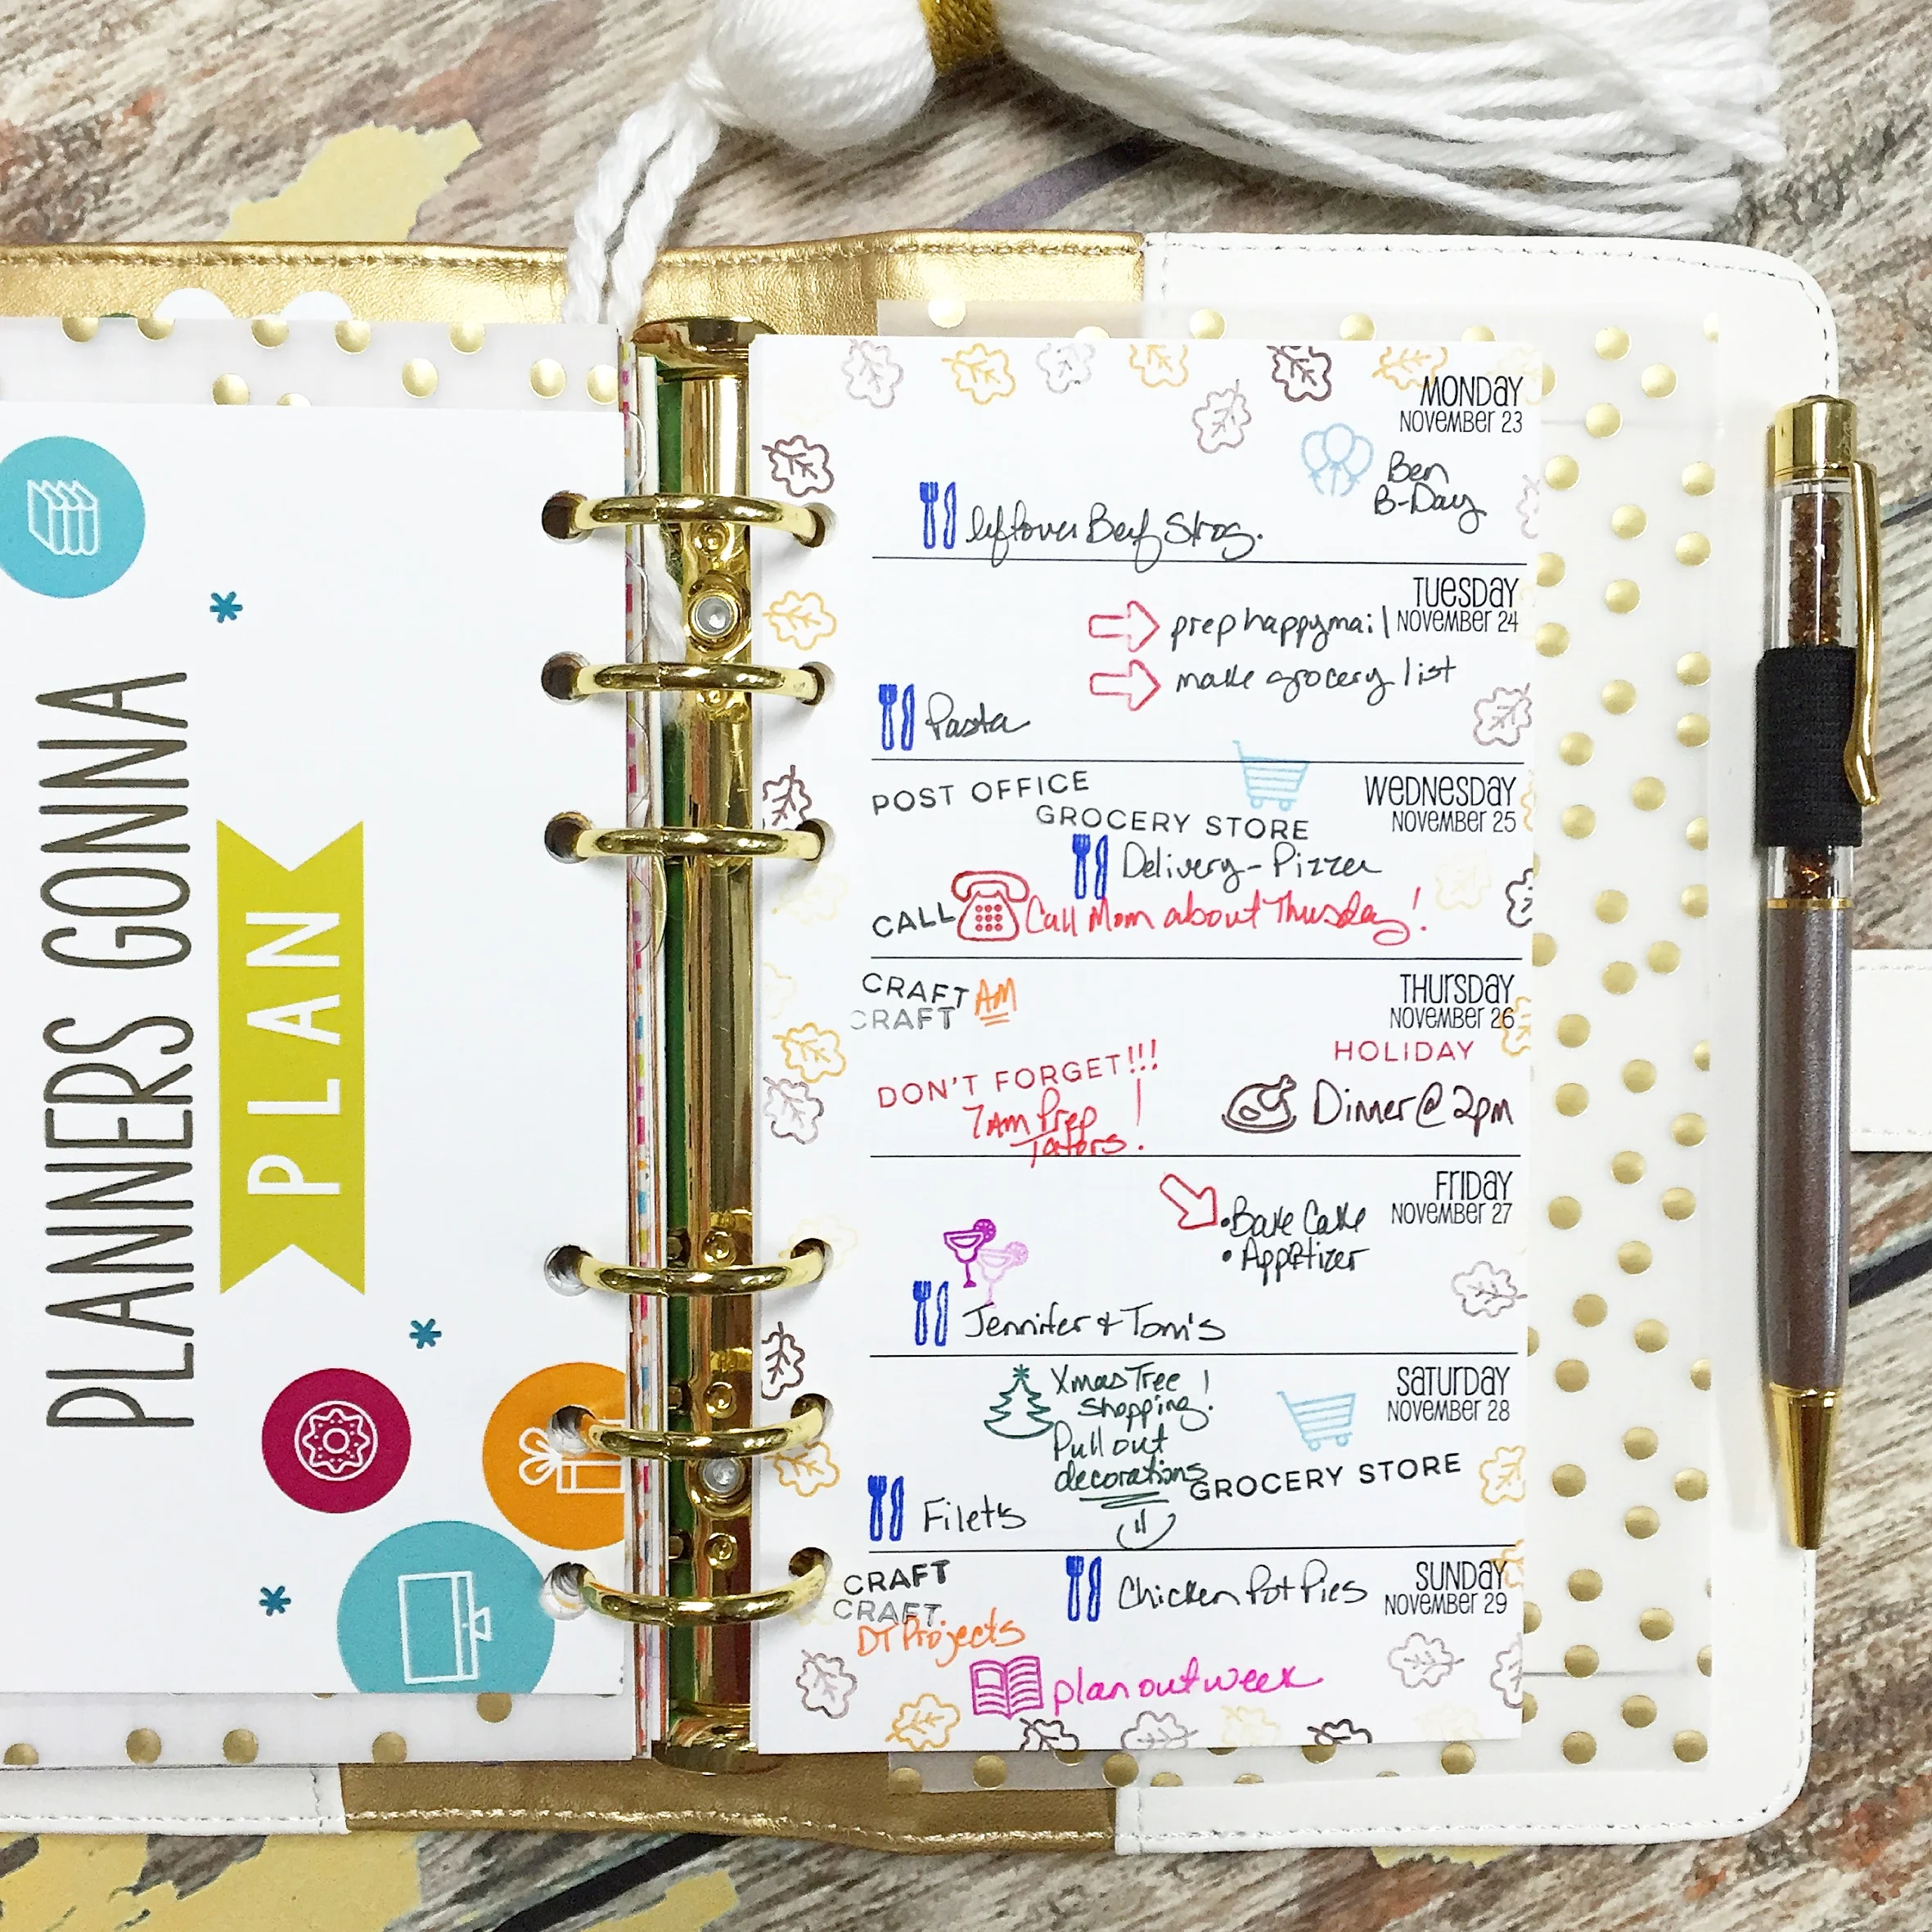 PLANNERS GONNA
PLAN
MONDAY
NOVEMBER 23
Ben
B-Day
leftover Beef Strog.
TUESDAY
NOVEMBER 24
prep happymail
make grocery list
Pasta
WEDNESDAY
NOVEMBER 25
POST OFFICE
GROCERY STORE
Delivery - Pizza
CALL
Call Mom about Thursday!
THURSDAY
NOVEMBER 26
CRAFT AM
CRAFT
HOLIDAY
DON'T FORGET!!!
7AM Prep
Taters!
Dinner @ 2pm
FRIDAY
NOVEMBER 27
• Bake Cake
• Appetizer
Jennifer & Tom's
SATURDAY
NOVEMBER 28
Xmas Tree
Shopping!
Pull out
decorations
GROCERY STORE
Filets
SUNDAY
NOVEMBER 29
CRAFT
CRAFT
DT Projects
Chicken Pot Pies
plan out week